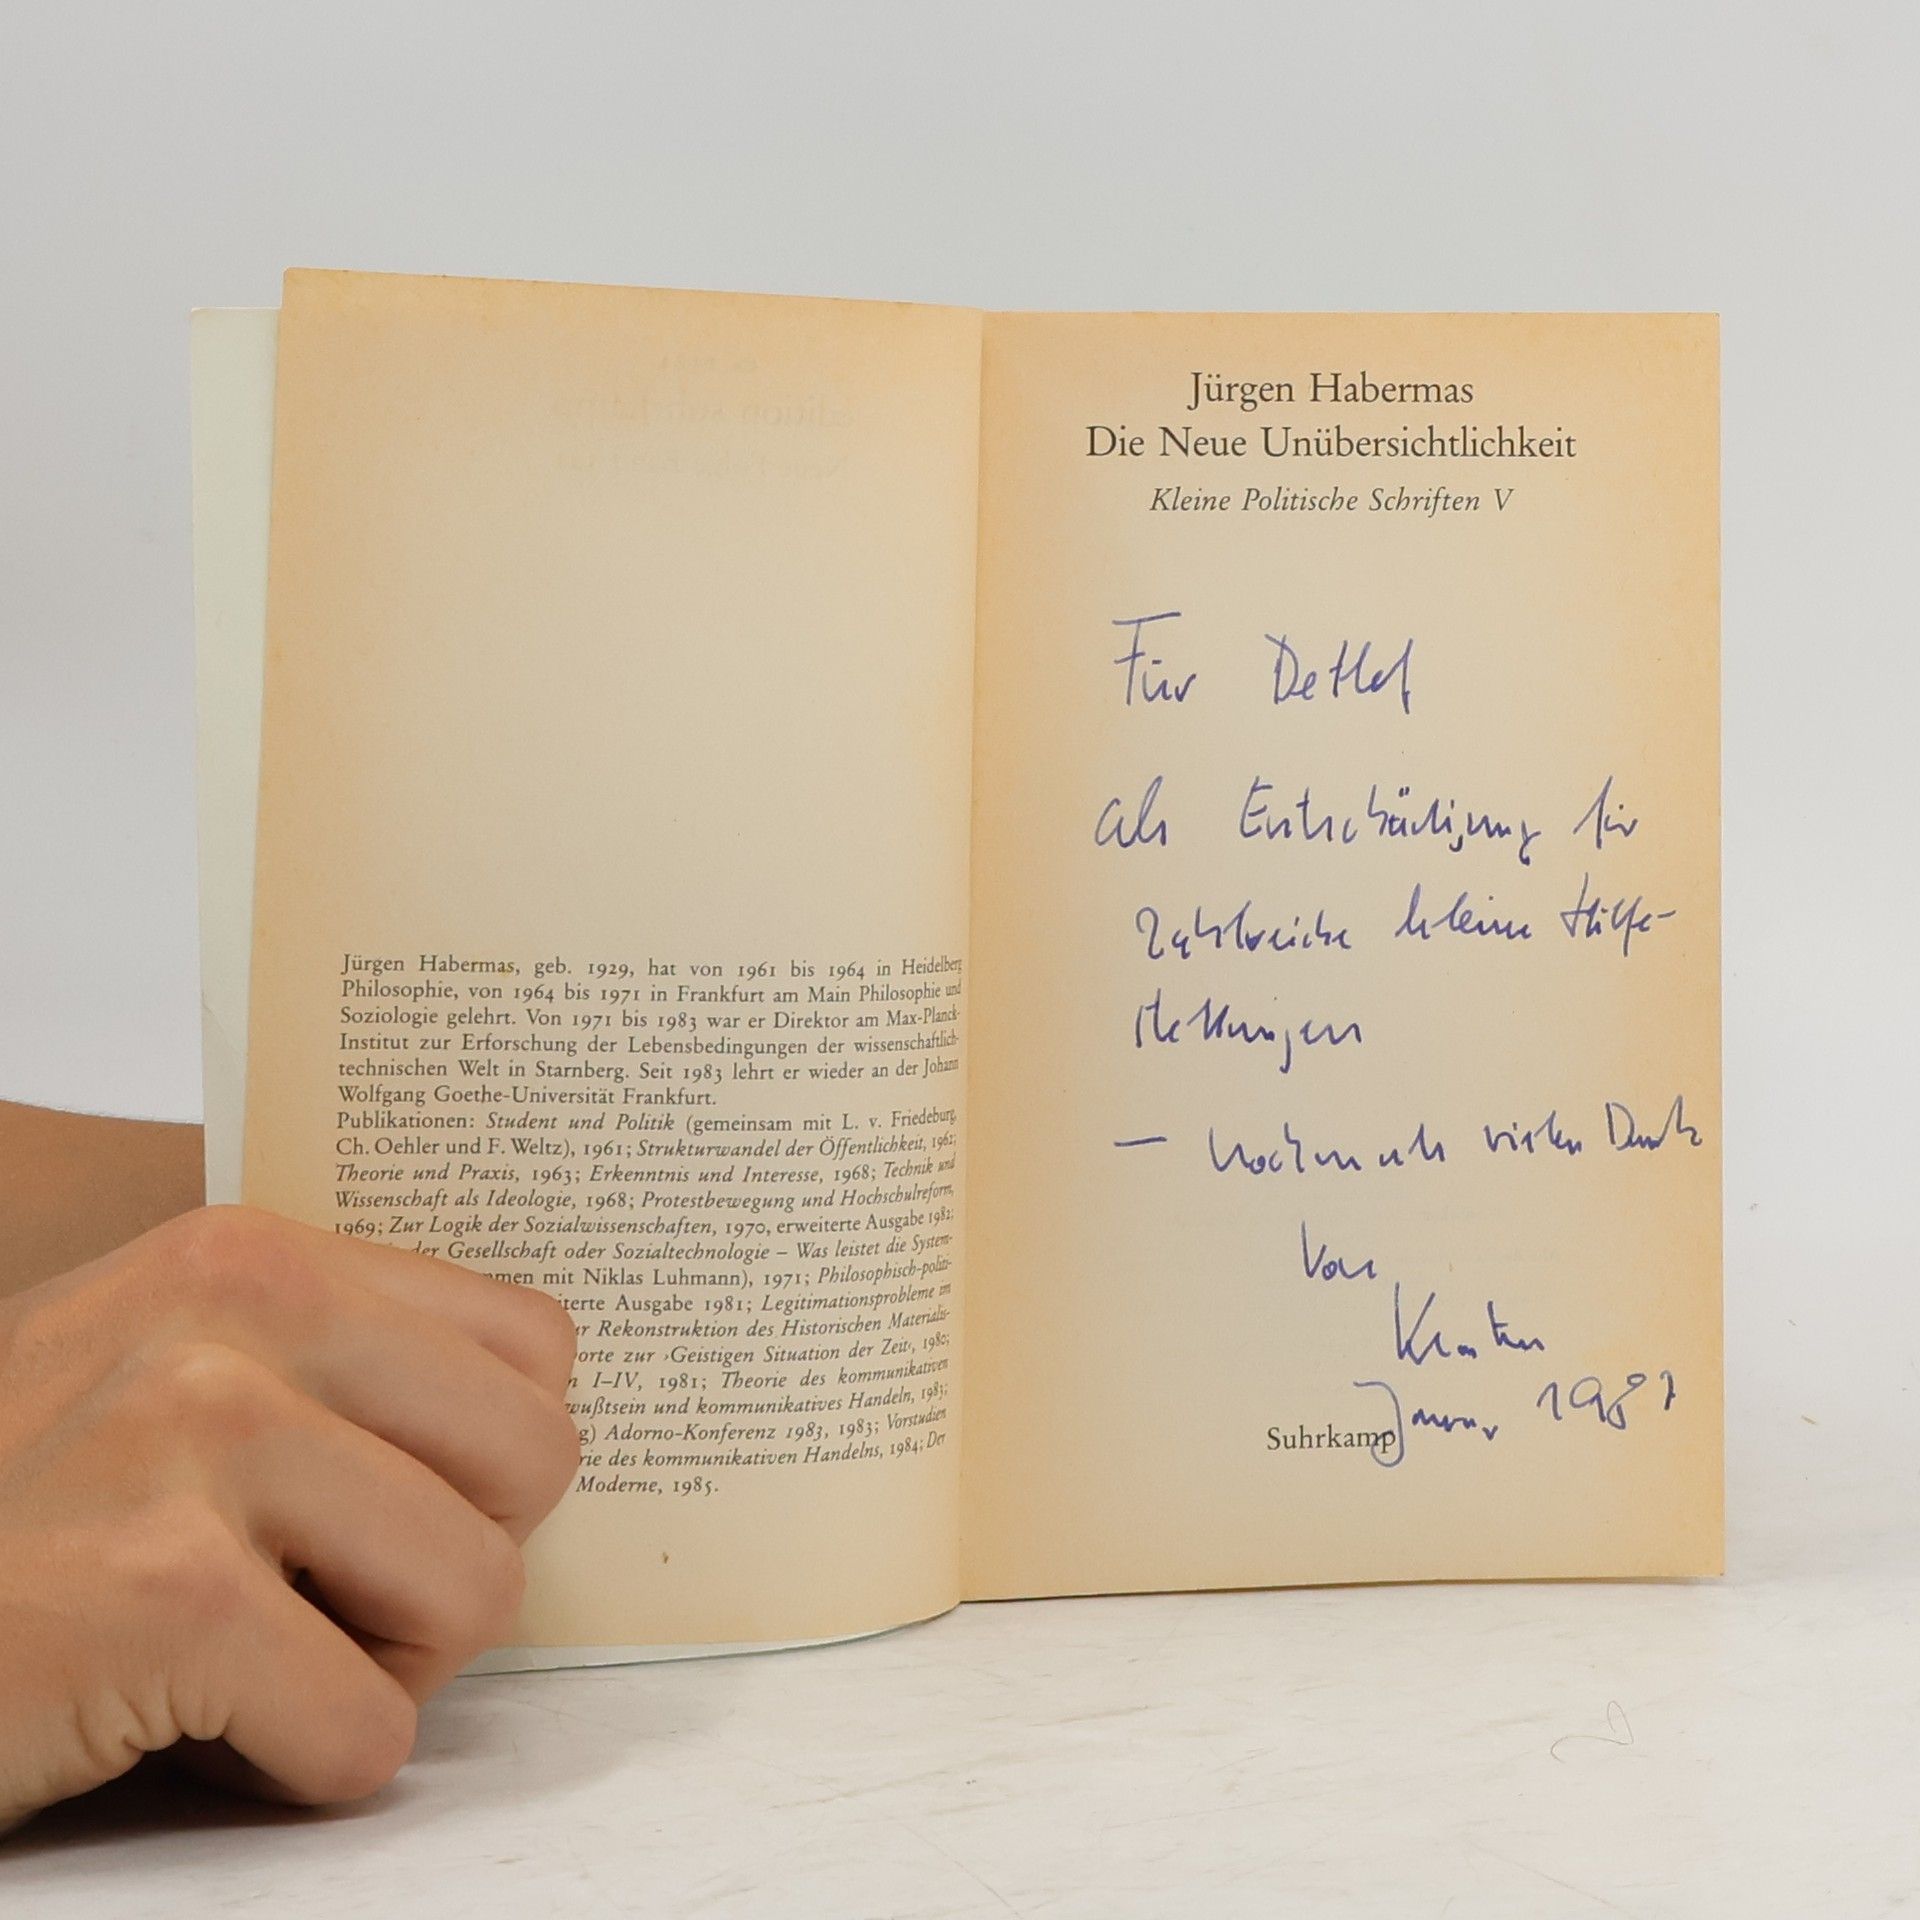 Jürgen Habermas, geb. 1929, hat von 1961 bis 1964 in Heidelberg
Philosophie, von 1964 bis 1971 in Frankfurt am Main Philosophie und
Soziologie gelehrt. Von 1971 bis 1983 war er Direktor am Max-Planck-
Institut zur Erforschung der Lebensbedingungen der wissenschaftlich-
technischen Welt in Starnberg. Seit 1983 lehrt er wieder an der Johann
Wolfgang Goethe-Universität Frankfurt.
Publikationen: Student und Politik (gemeinsam mit L. v. Friedeburg,
Ch. Oehler und F. Weltz), 1961; Strukturwandel der Öffentlichkeit, 1962;
Theorie und Praxis, 1963; Erkenntnis und Interesse, 1968; Technik und
Wissenschaft als Ideologie, 1968; Protestbewegung und Hochschulreform,
1969; Zur Logik der Sozialwissenschaften, 1970, erweiterte Ausgabe 1982;
der Gesellschaft oder Sozialtechnologie – Was leistet die System-
mmen mit Niklas Luhmann), 1971; Philosophisch-politi-
iterte Ausgabe 1981; Legitimationsprobleme im
ur Rekonstruktion des Historischen Materialis-
orte zur ›Geistigen Situation der Zeit‹, 1980;
n I–IV, 1981; Theorie des kommunikativen
wußtsein und kommunikatives Handeln, 1983;
g) Adorno-Konferenz 1983, 1983; Vorstudien
rie des kommunikativen Handelns, 1984; Der
Moderne, 1985.
Jürgen Habermas
Die Neue Unübersichtlichkeit
Kleine Politische Schriften V
Für Detlef
als Entschädigung für
zahlreiche kleine Hilfe-
stellungen
– nochmals vielen Dank
Von
Januar 1987
Suhrkamp